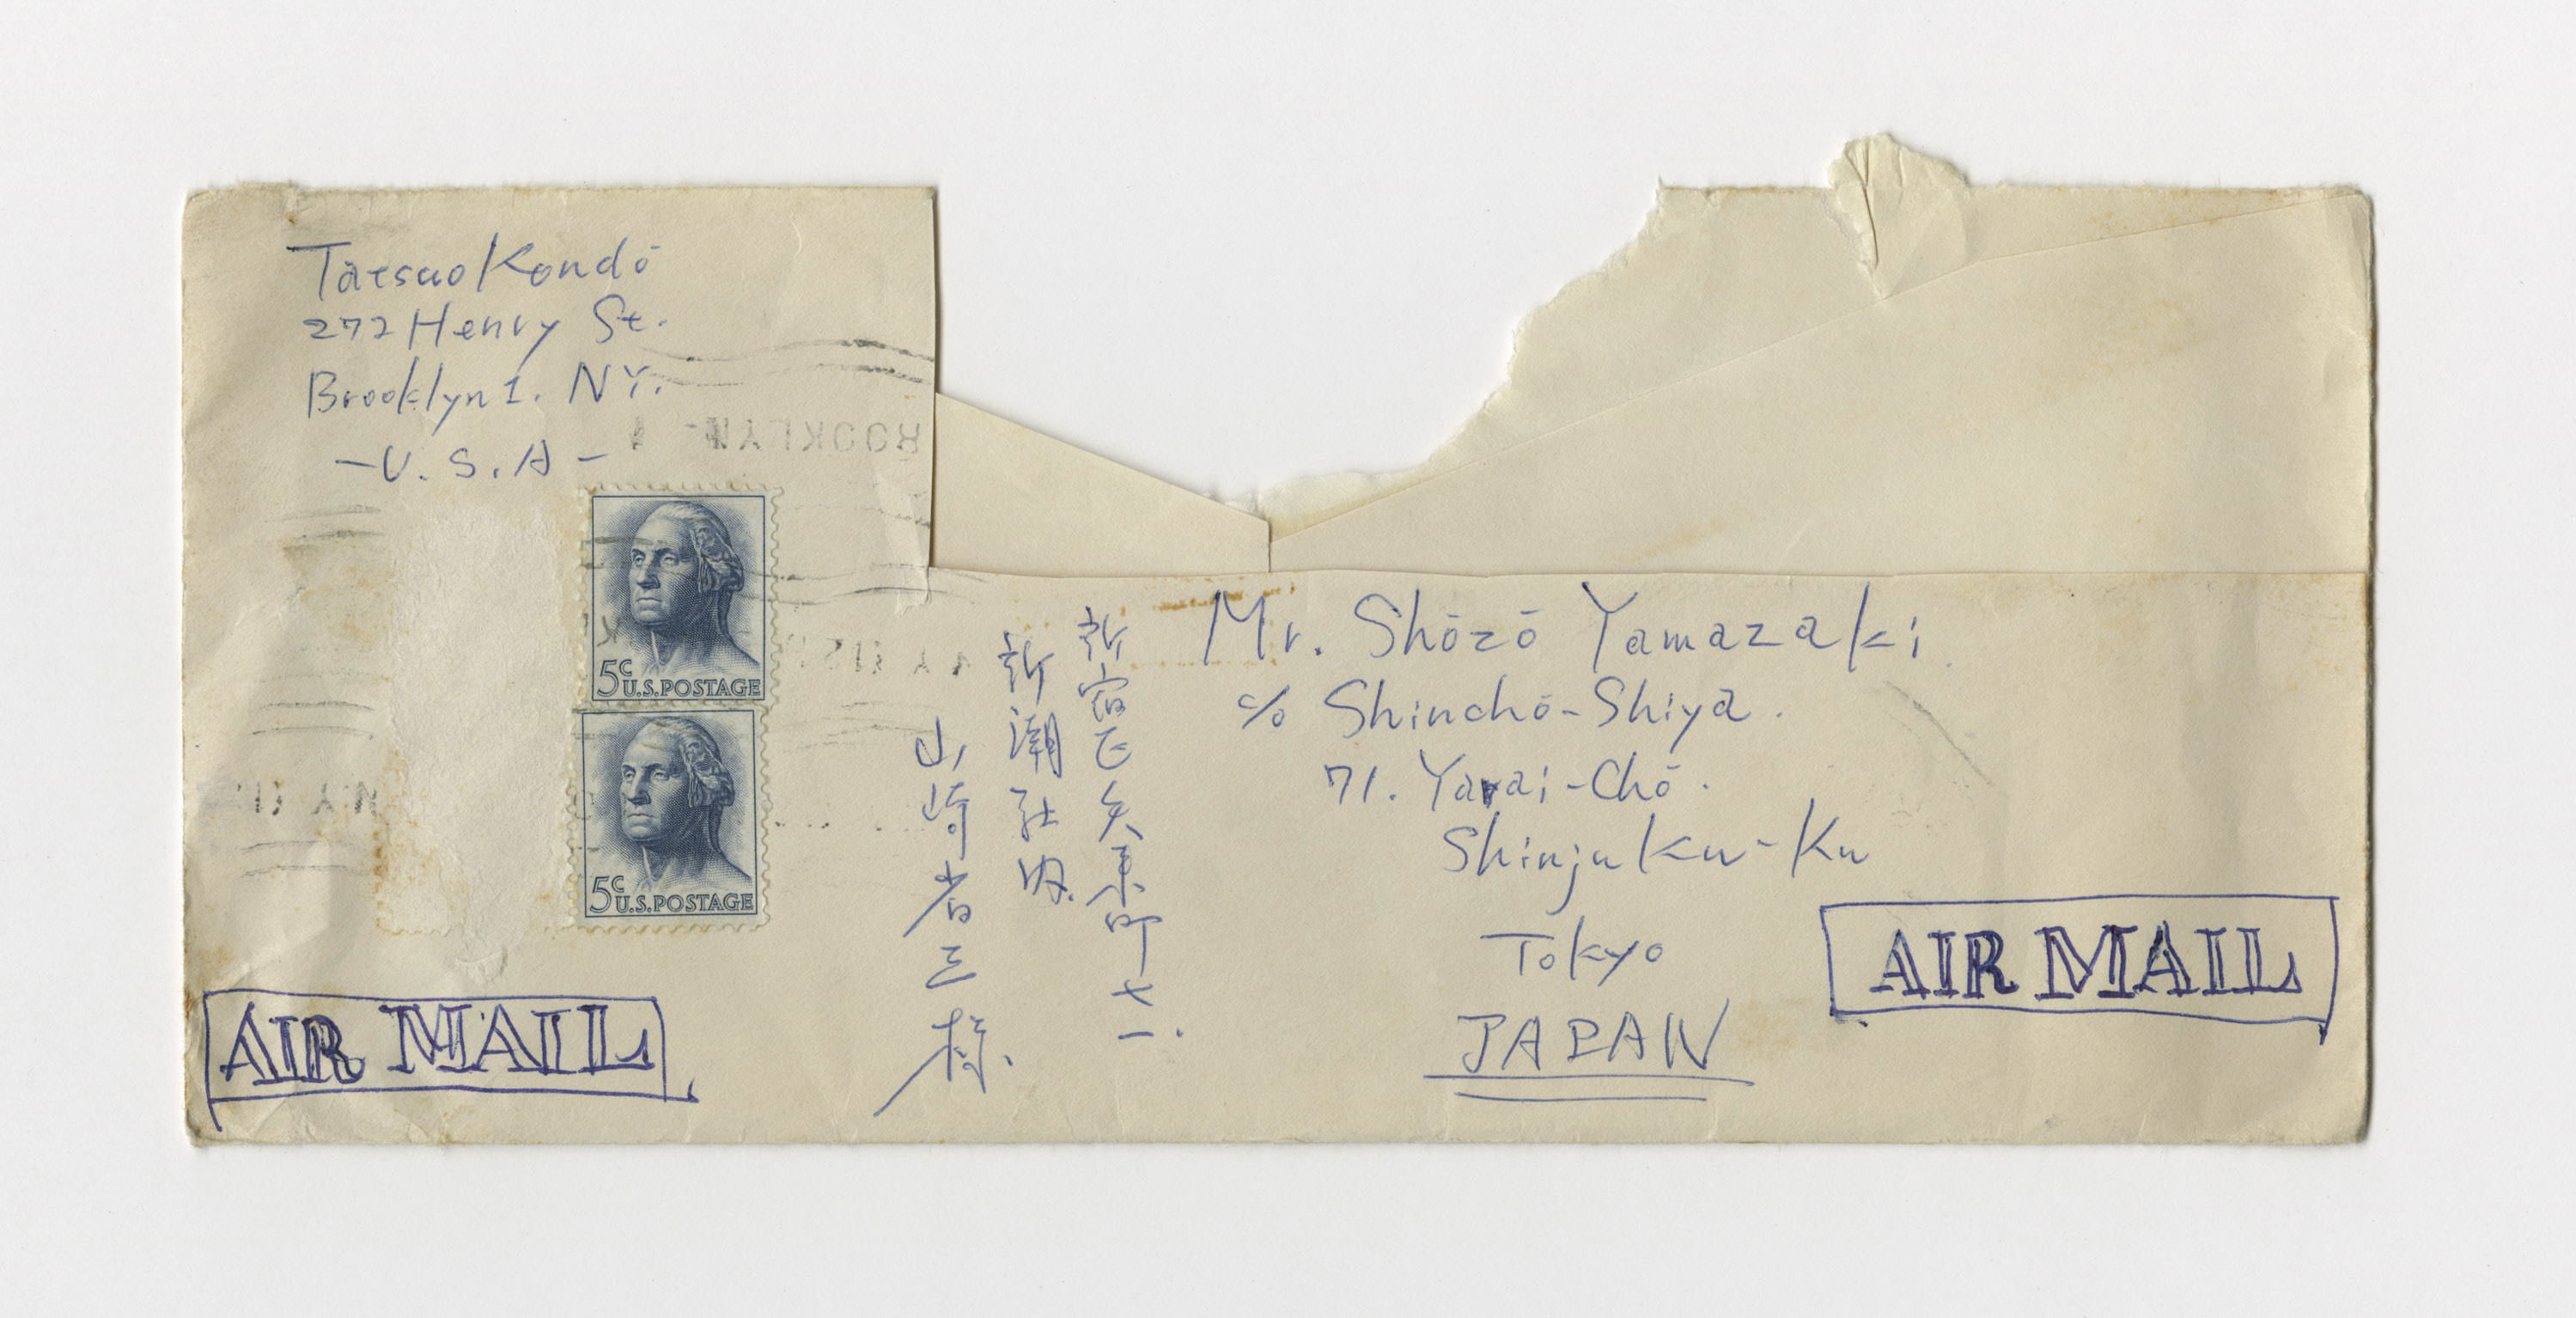 Tatsuo Kondō
272 Henry St.
Brooklyn 1. NY.
-U.S.A-
ROOKLYN
5c U.S.POSTAGE
5c U.S.POSTAGE
AIR MAIL
新宿区矢来町七一.
新潮社内.
山崎省三様.
Mr. Shōzō Yamazaki
c/o Shinchō-Shiya.
71. Yarai-Chō.
Shinjuku-Ku
Tokyo
JAPAN
AIR MAIL